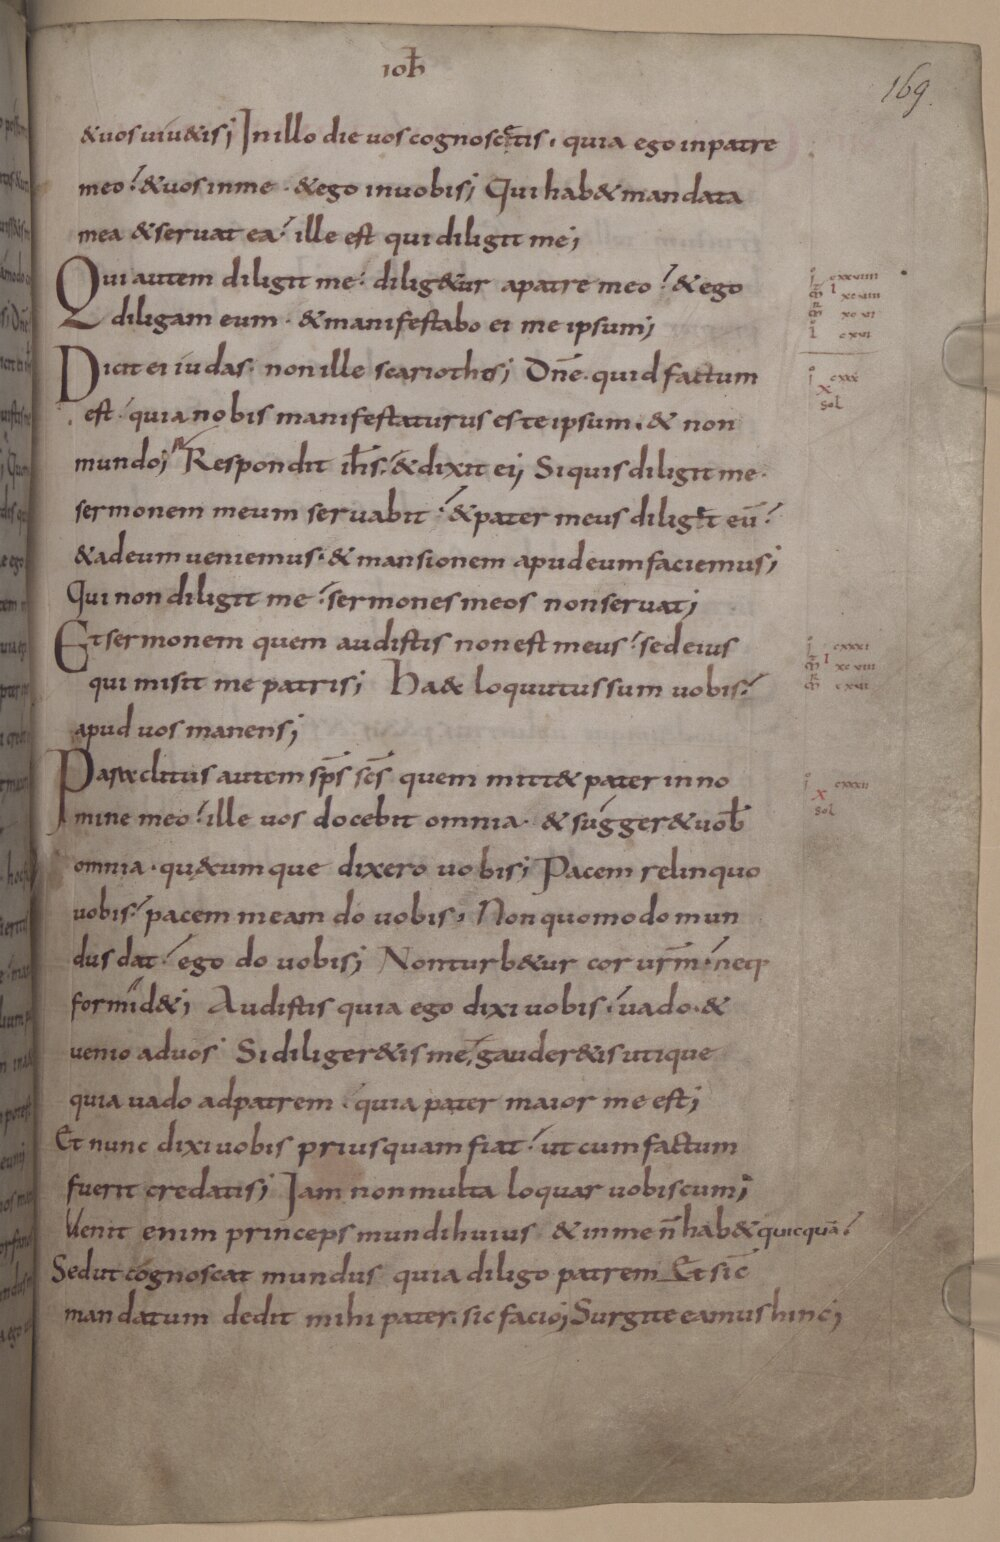 ioħ
169
&uosuiu&is; Inillo die uos cognoscetis, quia ego inpatre
meo. &uos inme. &ego inuobis; Qui hab& mandata
mea &seruat ea. ille est qui diligit me;
Qui autem diligit me. dilig&ur apatre meo. &ego
diligam eum. &manifestabo ei me ipsum;
Dicit ei iudas. non ille scariothis; Dn̄e. quid factum
est. quia nobis manifestaturus es te ipsum. & non
mundo; Respondit ih̄s. &dixit ei; Siquis diligit me.
sermonem meum seruabit. &pater meus diliget eū.
&adeum ueniemus. &mansionem apud eum faciemus;
Qui non diligit me. sermones meos non seruat;
Et sermonem quem audistis non est meus. sed eius
qui misit me patris; Haec locutus sum uobis.
apud uos manens;
Paraclitus autem sp̄s sc̄s quem mitt& pater inno
mine meo. ille uos docebit omnia. & sugger& uob̄
omnia. quęcumque dixero uobis; Pacem relinquo
uobis. pacem meam do uobis, Non quomodo mun
dus dat. ego do uobis; Non turb&ur cor ur̄m. neq;
formid&; Audistis quia ego dixi uobis. uado. &
uenio aduos; Si diliger&is me, gauder&is utique
quia uado adpatrem. quia pater maior me est;
Et nunc dixi uobis priusquam fiat. ut cum factum
fuerit credatis; Iam non multa loquar uobiscum;
Uenit enim princeps mundi huius & in me n̄ hab& quicquā.
Sed ut cognoscat mundus quia diligo patrem Et sic
mandatum dedit mihi pater. sic facio; Surgite eamus hinc;
cxxx
x
sol
cxxxi
cxxxii
x
sol